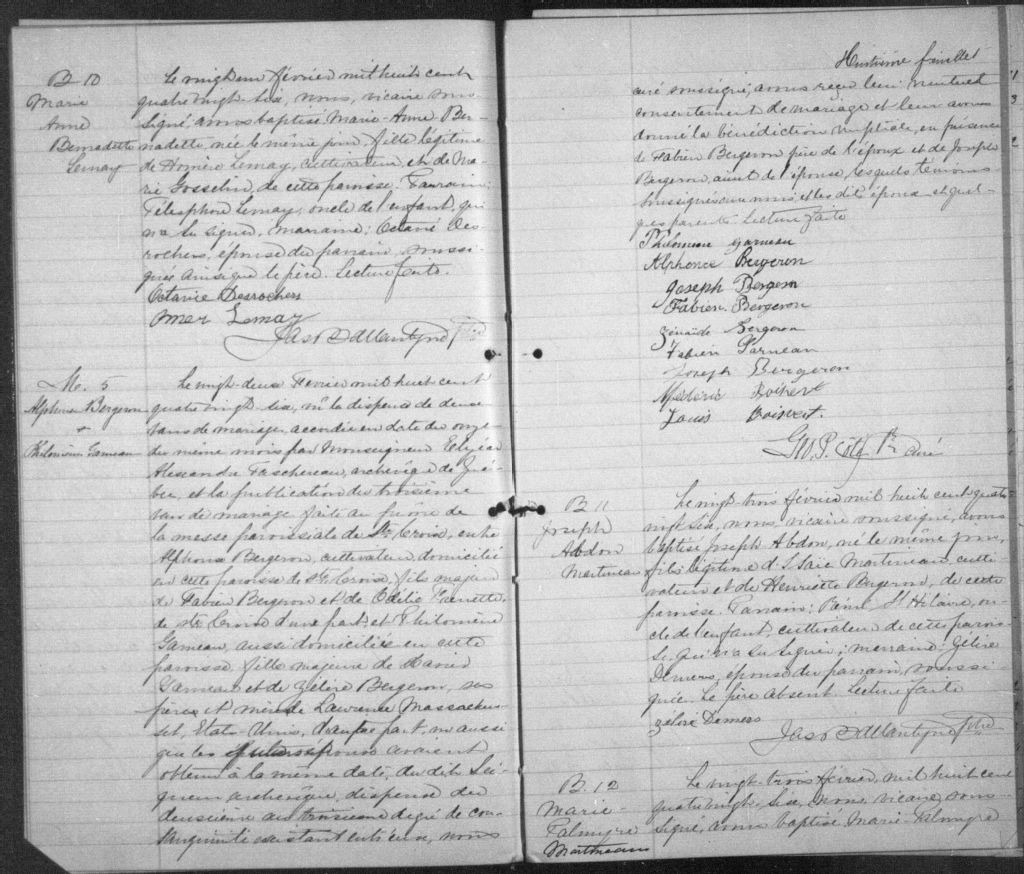 B 10
Marie
Anne
Bernadette
Lemay
Le vingt un février mil huit cent
quatre vingt-six, nous, vicaire sous-
signé, avons baptisé Marie-Anne Ber-
nadette, née le même jour, fille légitime
de Homère Lemay, cultivateur, et de Ma-
rie Gosselin, de cette paroisse. Parrain:
Télesphore Lemay, oncle de l'enfant, qui
n'a su signer, marraine: Octavie Des-
rochers, épouse du parrain, soussi-
gnée ainsi que le père. Lecture faite.
Octavie Desrochers
Omer Lemay
Ptre
M. 5
Alphonse Bergeron
+
Philomène Garneau
Le vingt-deux Février mil huit cent
quatre vingt six, vu la dispense de deux
bans de mariage, accordée en date du onze
du même mois par Monseigneur Elzéar
Alexandre Taschereau, archevêque de Qué-
bec, et la publication du troisième
ban de mariage faite au prône de
la messe paroissiale de Ste Croix, entre
Alphonse Bergeron, cultivateur domicilié
en cette paroisse de Ste Croix, fils majeur
de Fabien Bergeron et de Odélie
de Ste Croix d'une part, et Philomène
Garneau, aussi domiciliée en cette
paroisse, fille majeure de Xavier
Garneau et de Zélire Bergeron, ses
père et mère de Lawrence Massachus-
set, Etats-Unis, d'autre part, vu aussi
que les époux avaient
obtenu à la même date, du dit Sei-
gneur archevêque, dispense du
deuxième au troisième degré de con-
sanguinité existant entr'eux, nous
Huitième feuillet
curé soussigné, avons reçu leur mutuel
consentement de mariage et leur avons
donné la bénédiction nuptiale, en présence
de Fabien Bergeron père de l'époux et de Joseph
Bergeron, de l'épouse, lesquels témoins
soussignés avec nous, et les dits époux et quel-
ques parents. Lecture faite
Philomène Garneau
Alphonse Bergeron
Joseph Bergeron
Fabien Bergeron
Zénaïde Bergeron
Fabien Garneau
Joseph Bergeron
Médéric Boisvert
Louis Boisvert
Ptre curé
B 11
Joseph
Abdon
Martineau
Le vingt-trois février mil huit cent quatre
vingt six, nous, vicaire soussigné, avons
baptisé Joseph Abdon, né le même jour,
fils légitime d'Isaïe Martineau, culti-
vateur et de Henriette Bergeron, de cette
paroisse. Parrain: Rémi St Hilaire, on-
cle de l'enfant, cultivateur de cette parois-
se, qui n'a su signer; marraine: Zélire
Demers, épouse du parrain, soussi-
gnée. Le père absent. Lecture faite
Zélire Demers
Ptre
B. 12
Marie
Palmyre
Martineau
Le vingt-trois février, mil huit cent
quatre vingt-six, nous, vicaire, sous-
signé, avons baptisé Marie-Palmyre